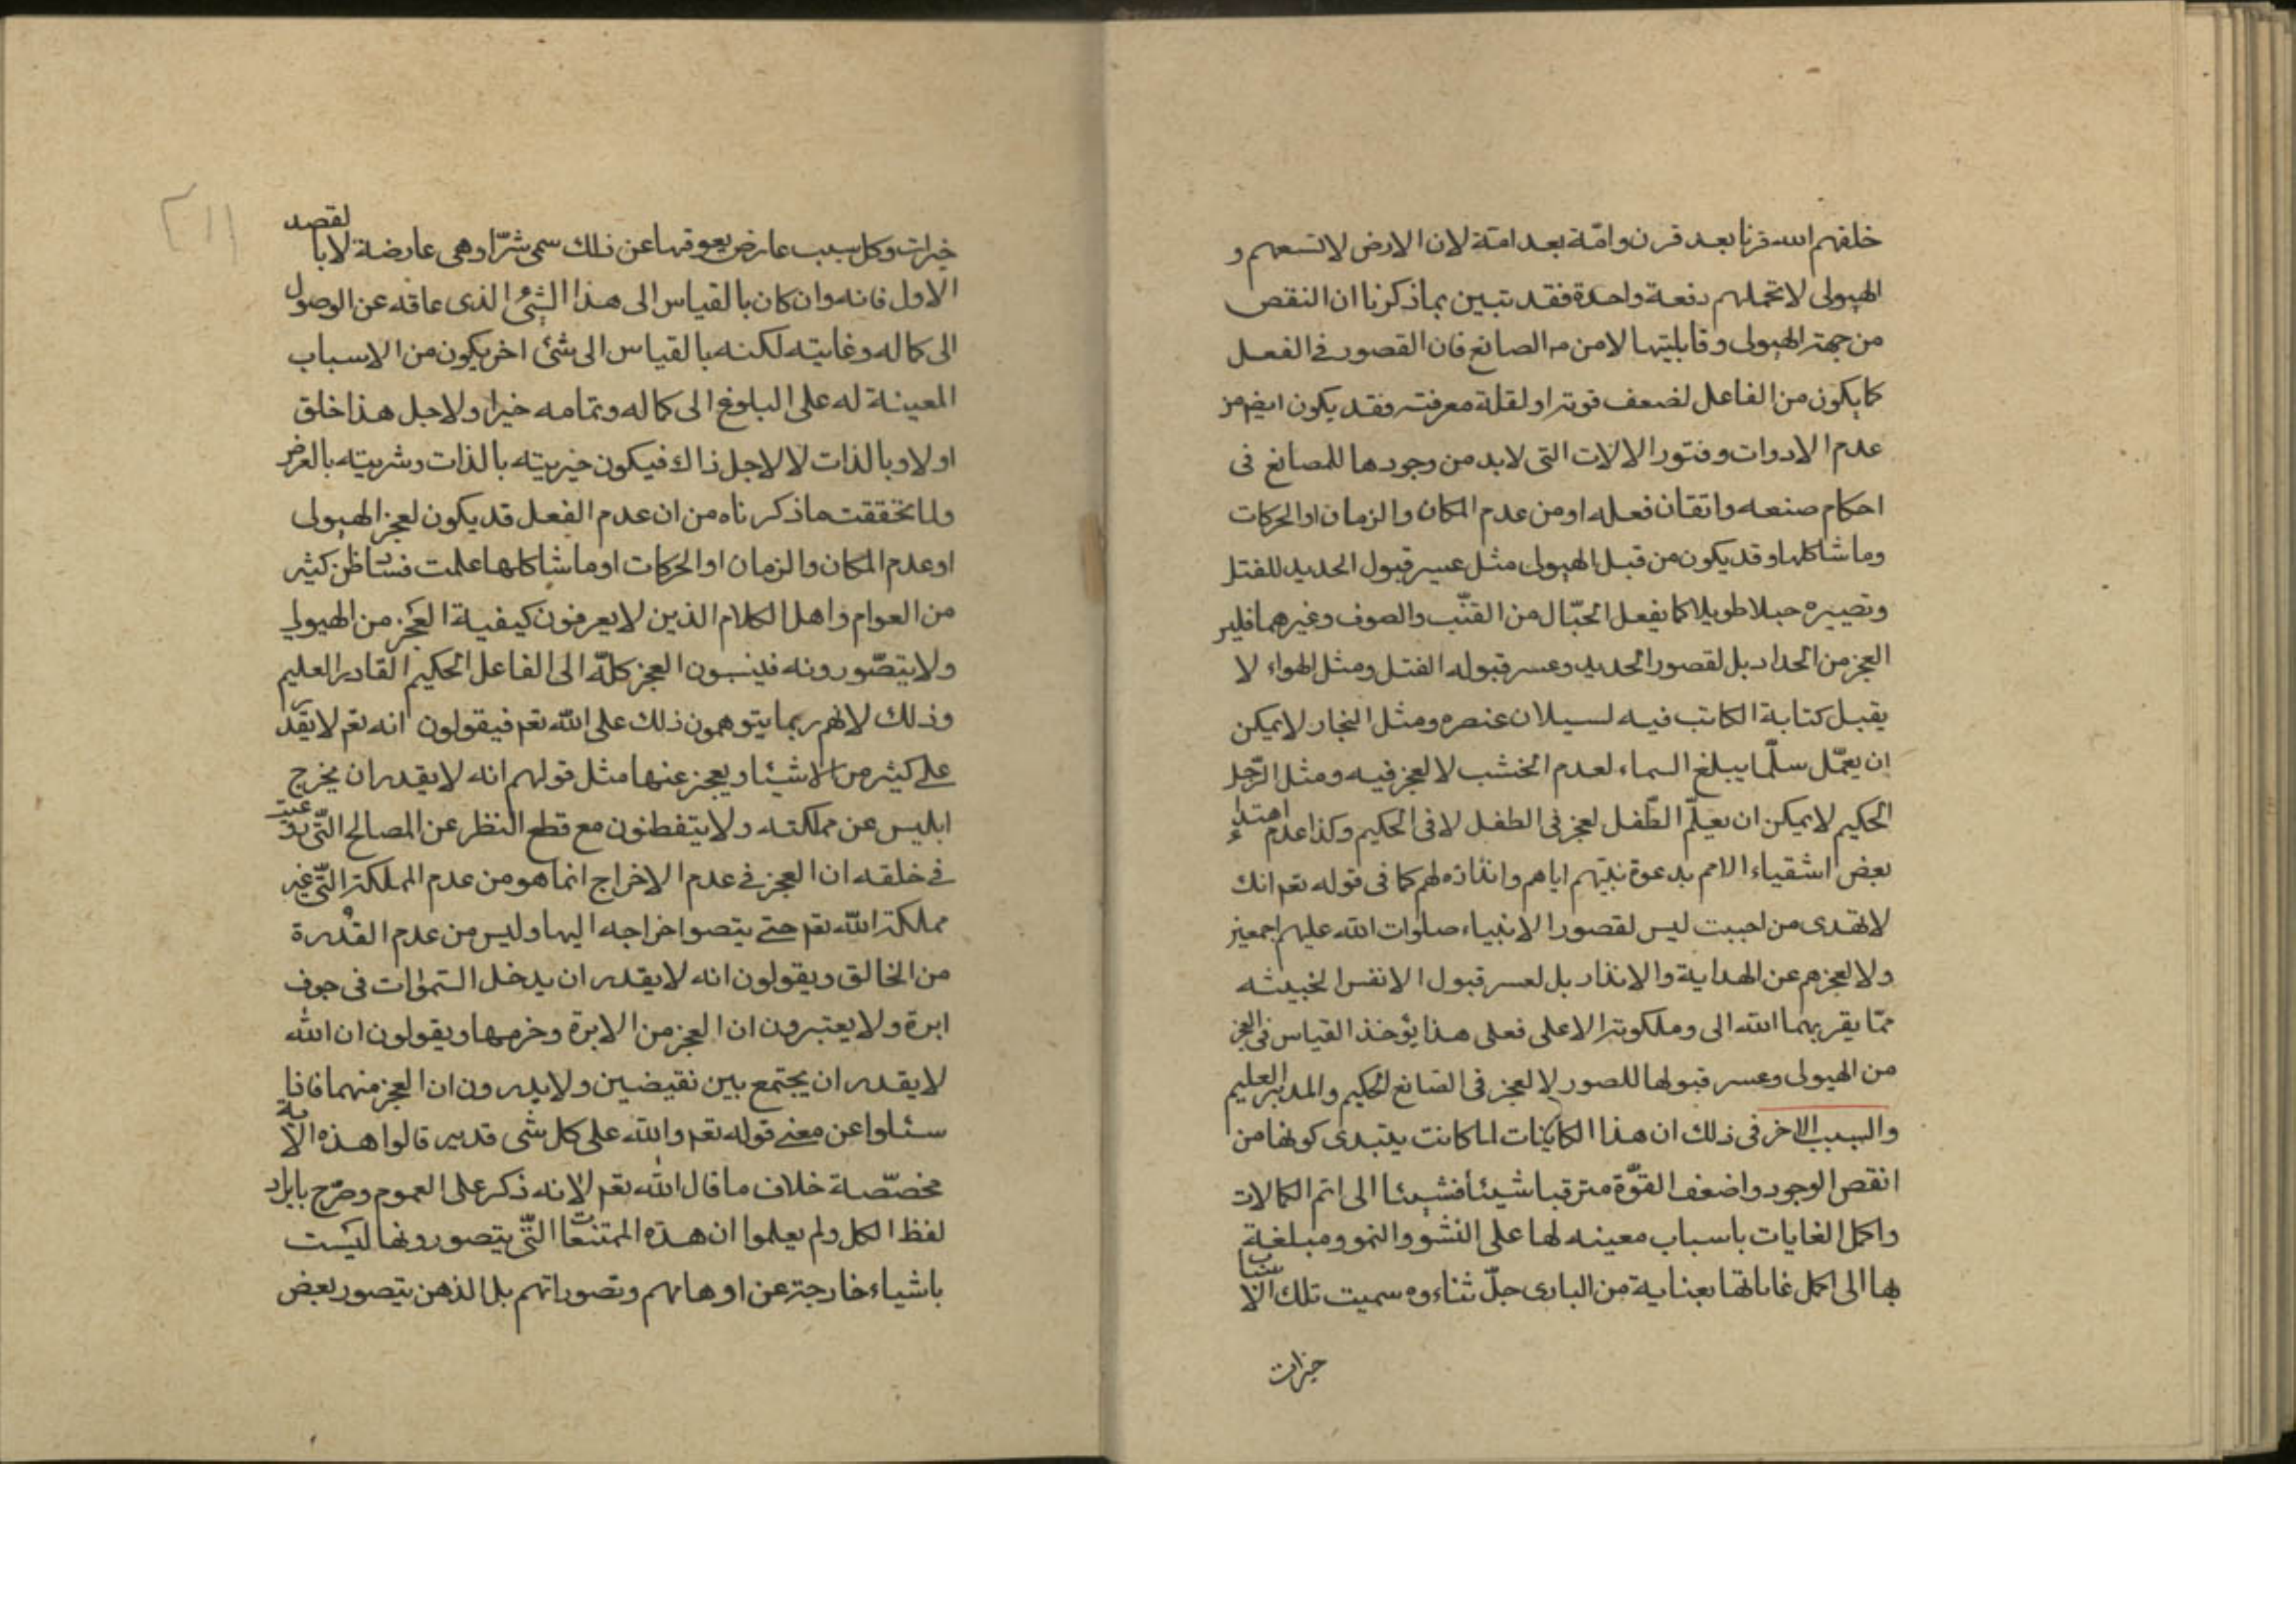 خلقهم الله قرنا بعد قرن وامّة بعد امّة لان الارض لا تسعهم و
الهيولى لا تحملهم دفعة واحدة فقد تبين بما ذكرنا ان النقص
من جهة الهيولى وقابليتها لا من الصانع فان القصور في الفعل
كما يكون من الفاعل لضعف قوته او لقلة معرفته فقد يكون ايضا من
عدم الادوات وفتور الالات التى لا بد من وجودها للصانع فى
احكام صنعه واتقان فعله او من عدم المكان والزمان او الحركات
وما شاكلها وقد يكون من قبل الهيولى مثل عسر قبول الحديد للفتل
وتصييره حبلا طويلا كما يفعل الحبّال من القنّب والصوف وغيرهما فليس
العجز من الحداد بل لقصور الحديد وعسر قبوله الفتل ومثل الهواء لا
يقبل كتابة الكاتب فيه لسيلان عنصره ومثل النجار لا يمكن
ان يعمّل سلّما يبلغ السماء لعدم الخشب لا لعجز فيه ومثل الرّجل
الحكيم لا يمكن ان يعلّم الطّفل لعجز فى الطفل لا فى الحكيم وكذا عدم اهتداء
بعض اشقياء الامم بدعوة نبيّهم اياهم وانذاره لهم كما فى قوله تعم انك
لا تهدى من احببت ليس لقصور الانبياء صلوات الله عليهم اجمعين
ولا لعجزهم عن الهداية والانذار بل لعسر قبول الانفس الخبيثه
ممّا يقربهما الله الى وملكوته الاعلى فعلى هذا يؤخذ القياس فى العجز
من الهيولى وعسر قبولها للصور لا لعجز فى الصّانع الحكيم والمدبر العليم
والسبب الاخر فى ذلك ان هذا الكاينات لما كانت يبتدى كونها من
انقص الوجود واضعف القوّة مترقيا شيئا فشيئا الى اتم الكمالات
واكمل الغايات باسباب معينه لها على النشو والنمو ومبلغة
بها الى اكمل غاياتها بعناية من البارى جلّ ثناءوه سميت تلك الاسباب
خيرات
خيرات وكل سبب عارض يعوقها عن ذلك سمى شرّا وهى عارضة لا بالقصد
الاول فانه وان كان بالقياس الى هذا الشئ الذى عاقه عن الوصول
الى كماله وغايته لكنه بالقياس الى شئ اخر يكون من الاسباب
المعينة له على البلوغ الى كماله وتمامه خيرا ولاجل هذا خلق
اولا وبالذات لا لاجل ذاك فيكون خيريته بالذات وشريته بالعرض
ولما تحققت ما ذكرناه من ان عدم الفعل قد يكون لعجز الهيولى
او عدم المكان والزمان او الحركات او ما شاكلها علمت فساد ظن كثير
من العوام واهل الكلام الذين لا يعرفون كيفية العجز من الهيولى
ولا يتصّورونه فينسبون العجز كلّه الى الفاعل الحكيم القادر العليم
وذلك لانهم ربما يتوهمون ذلك على الله تعم فيقولون انه تعم لا يقدر
على كثير من الاشياء ويعجز عنها مثل قولهم انه لا يقدر ان يخرج
ابليس عن مملكته ولا يتفطنون مع قطع النظر عن المصالح التّى روعيت
فى خلقه ان العجز فى عدم الاخراج انما هو من عدم المملكة التّى غير
مملكة الله تعم حتى يتصوا خراجه اليها وليس من عدم القدرة
من الخالق ويقولون انه لا يقدر ان يدخل السّموات فى جوف
ابرة ولا يعتبرون ان العجز من الابرة وخرمها ويقولون ان الله
لا يقدر ان يجتمع بين نقيضين ولا يدرون ان العجز منهما فاذا
سئلوا عن معنى قوله تعم والله على كل شى قدير قالوا هذه الاية
مخصّصة خلاف ما قال الله تعم لانه ذكر على العموم وصرّح بايراد
لفظ الكل ولم يعلموا ان هذه الممتنعات التّى يتصورونها ليست
باشياء خارجة عن اوهامهم وتصوراتهم بل الذهن يتصور بعض